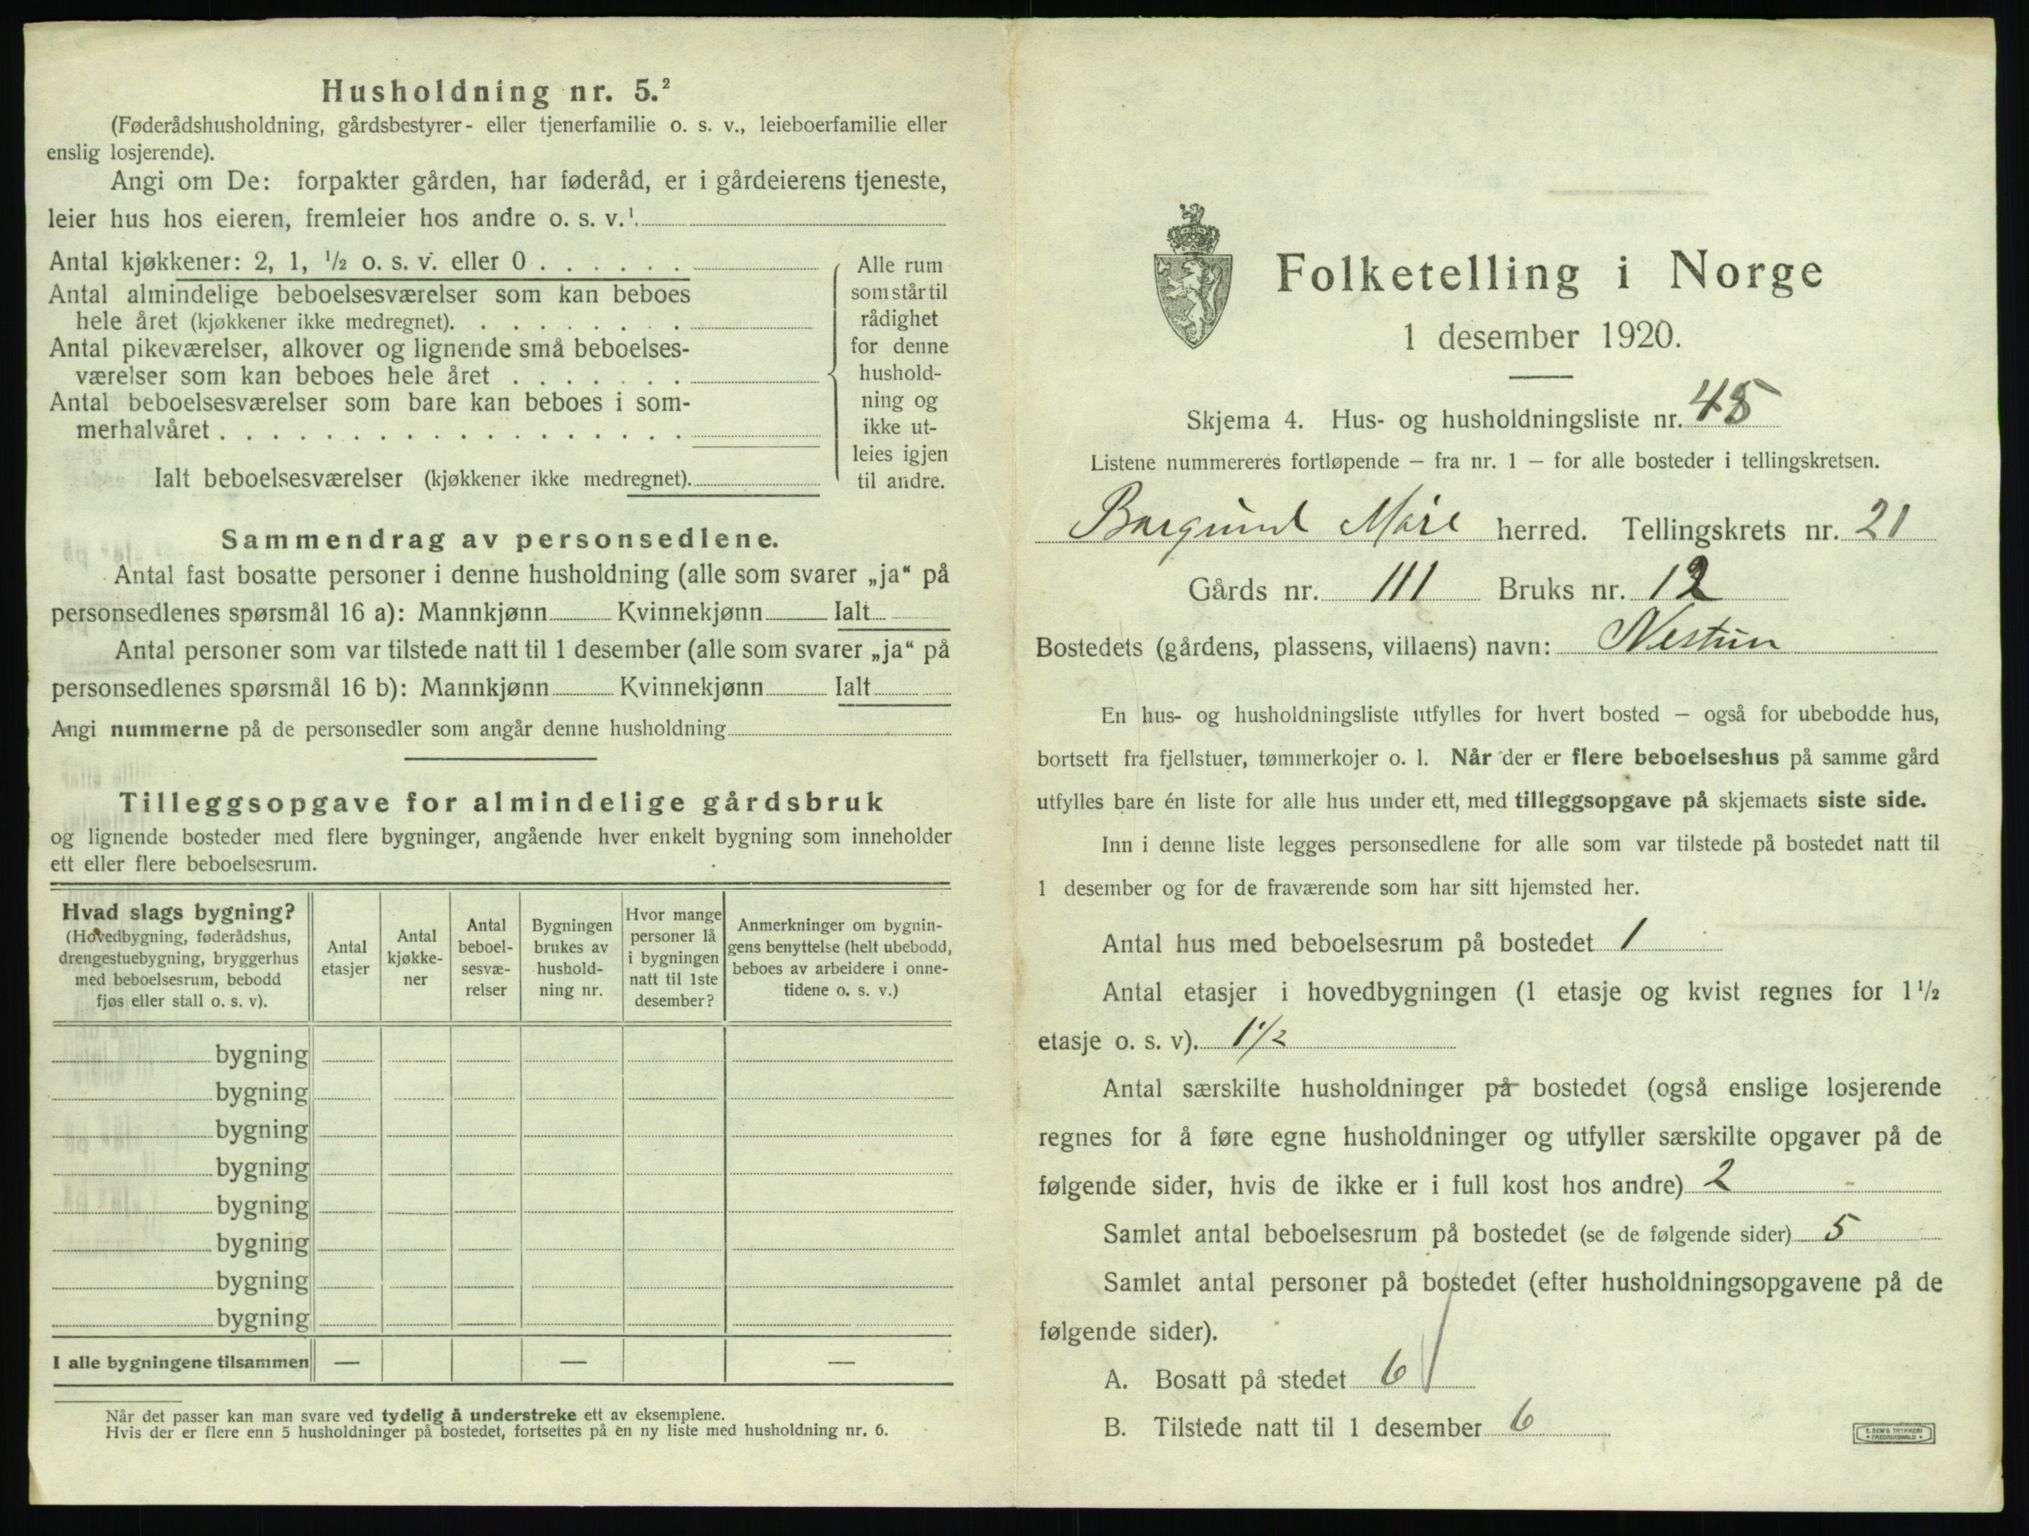 Husholdning nr. 5.²
(Føderådshusholdning, gårdsbestyrer- eller tjenerfamilie o. s. v., leieboerfamilie eller
enslig losjerende).
Angi om De: forpakter gården, har føderåd, er i gårdeierens tjeneste,
leier hus hos eieren, fremleier hos andre o. s. v.¹
Antal kjøkkener: 2, 1, ½ o. s. v. eller 0 . . . . . .
Antal almindelige beboelsesværelser som kan beboes
hele året (kjøkkener ikke medregnet). . . . . . . . .
Antal pikeværelser, alkover og lignende små beboelses-
værelser som kan beboes hele året . . . . . . .
Antal beboelsesværelser som bare kan beboes i som-
merhalvåret . . . . . . . . . . . . . . . . .
Ialt beboelsesværelser (kjøkkener ikke medregnet).
Alle rum
som står til
rådighet
for denne
hushold-
ning og
ikke ut-
leies igjen
til andre.
Sammendrag av personsedlene.
Antal fast bosatte personer i denne husholdning (alle som svarer „ja“ på
personsedlenes spørsmål 16 a): Mannkjønn Kvinnekjønn Ialt
Antal personer som var tilstede natt til 1 desember (alle som svarer „ja“ på
personsedlenes spørsmål 16 b): Mannkjønn Kvinnekjønn Ialt
Angi nummerne på de personsedler som angår denne husholdning
Tilleggsopgave for almindelige gårdsbruk
og lignende bosteder med flere bygninger, angående hver enkelt bygning som inneholder
ett eller flere beboelsesrum.
Hvad slags bygning?
(Hovedbygning, føderådshus,
drengestuebygning, bryggerhus
med beboelsesrum, bebodd
fjøs eller stall o. s. v).
Antal
etasjer
Antal
kjøkke-
ner
Antal
beboel-
sesvæ-
relser
Bygningen
brukes av
hushold-
ning nr.
Hvor mange
personer lå
i bygningen
natt til 1ste
desember?
Anmerkninger om bygnin-
gens benyttelse (helt ubebodd,
beboes av arbeidere i onne-
tidene o. s. v.)
bygning
bygning
bygning
bygning
bygning
bygning
bygning
bygning
I alle bygningene tilsammen — — —
Når det passer kan man svare ved tydelig å understreke ett av eksemplene.
Hvis der er flere enn 5 husholdninger på bostedet, fortsettes på en ny liste med husholdning nr. 6.
Folketelling i Norge
1 desember 1920.
Skjema 4. Hus- og husholdningsliste nr. 48
Listene nummereres fortløpende – fra nr. 1 – for alle bosteder i tellingskretsen.
Borgund Møre herred. Tellingskrets nr. 21
Gårds nr. 111 Bruks nr. 12
Bostedets (gårdens, plassens, villaens) navn: Nestun
En hus- og husholdningsliste utfylles for hvert bosted – også for ubebodde hus,
bortsett fra fjellstuer, tømmerkojer o. l. Når der er flere beboelseshus på samme gård
utfylles bare én liste for alle hus under ett, med tilleggsopgave på skjemaets siste side.
Inn i denne liste legges personsedlene for alle som var tilstede på bostedet natt til
1 desember og for de fraværende som har sitt hjemsted her.
Antal hus med beboelsesrum på bostedet 1
Antal etasjer i hovedbygningen (1 etasje og kvist regnes for 1½
etasje o. s. v). 1½
Antal særskilte husholdninger på bostedet (også enslige losjerende
regnes for å føre egne husholdninger og utfyller særskilte opgaver på de
følgende sider, hvis de ikke er i full kost hos andre) 2
Samlet antal beboelsesrum på bostedet (se de følgende sider) 5
Samlet antal personer på bostedet (efter husholdningsopgavene på de
følgende sider).
A. Bosatt på stedet 6
B. Tilstede natt til 1 desember 6